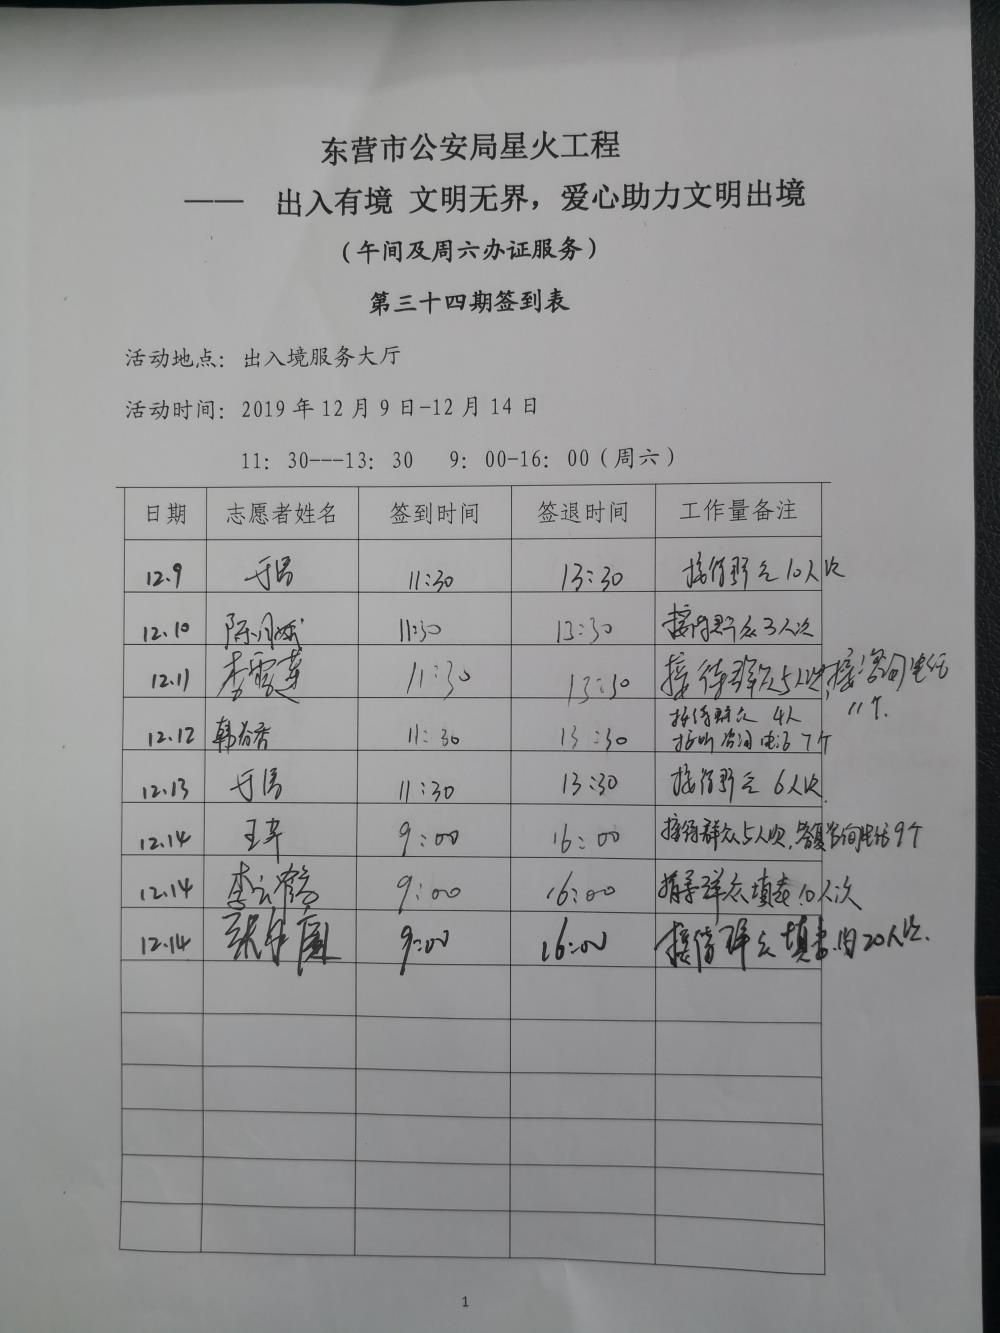 东营市公安局星火工程
—— 出入有境 文明无界，爱心助力文明出境
（午间及周六办证服务）
第三十四期签到表
活动地点：出入境服务大厅
活动时间：2019 年 12 月 9 日-12 月 14 日
11：30---13：30 9：00-16：00（周六）
日期 志愿者姓名 签到时间 签退时间 工作量备注
12.9 11:30 13:30 接待群众10人次
12.10 11:30 13:30 接待群众3人次
12.11 李雪莲 11:30 13:30 接待群众5人次，接咨询电话
11个.
12.12 11:30 13:30 接待群众 4人
接听咨询电话 7个
12.13 11:30 13:30 接待群众 6人次.
12.14 9:00 16:00 接待群众5人次，答复咨询电话9个
12.14 9:00 16:00 指导群众填表10人次
12.14 9:00 16:00 接待群众填表约20人次.
1